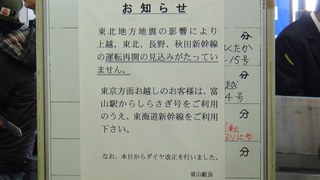 お知らせ
東北地方地震の影響により
上越、東北、長野、秋田新幹線
の運転再開の見込みがたってい
ません。
東京方面お越しのお客様は、富
山駅からしらさぎ号をご利用
のうえ、東海道新幹線をご利用
下さい。
なお、本日からダイヤ改正を行いました。
富山駅長
分
くたか
-15号
分
越
4号
運転